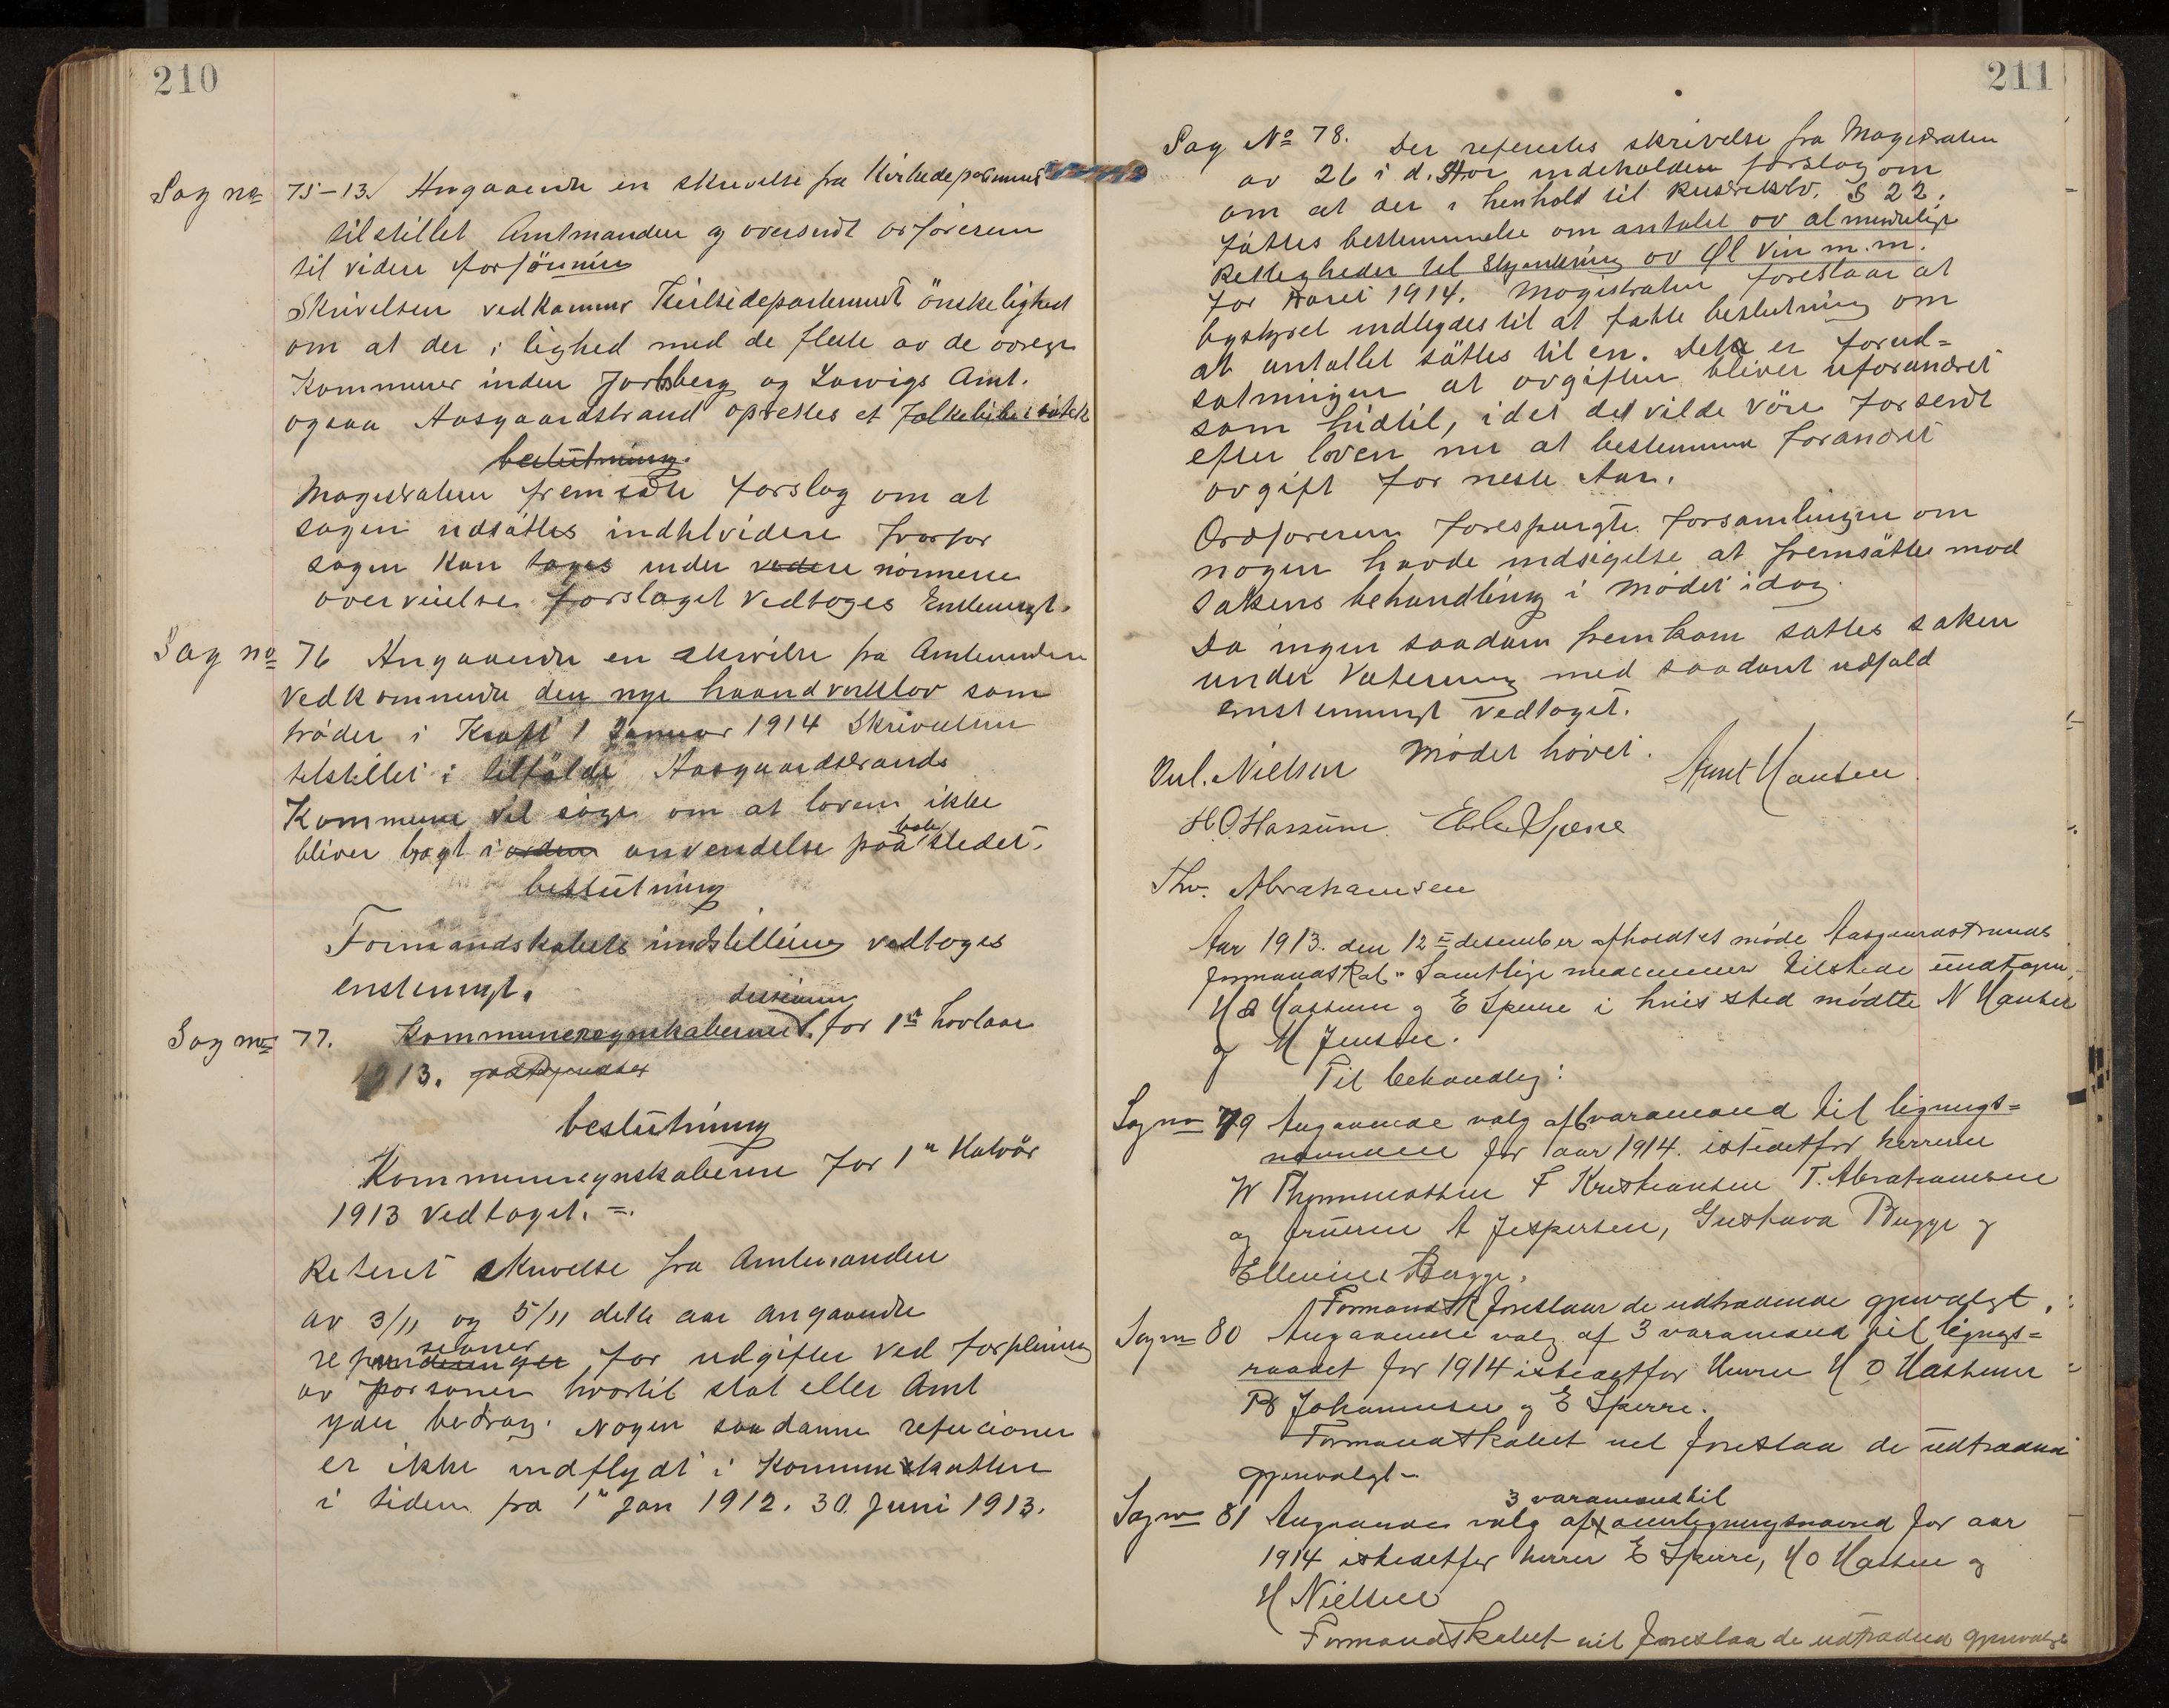 210
Sag no 75-13 Angaaende en skrivelse fra Kirkedepartement
tilstillet Amtmanden og oversendt orföreren
til videre forföinin
Skrivelsen vedkommer Kirkedepartementet önskelighed
om at der i lighed med de fleste av de övrege
Kommuner inden Jarlsberg og Larvigs Amt.
ogsaa Aasgaardstrand oprettes et folkebibliotek
beslutning.
Magistraten fremsatte forslag om at
sagen udsättes indtilvidere hvorfor
sagen kan tages under videre nörmere
overveielse. forslaget vedtoges Enstemigt.
Sag no 76 Angaaende en skrivelse fra Amtmanden
Vedkommende den nye haandverklov som
träder i Kraft 1 Januar 1914 Skrivelsen
tilstillet i tilfälde Aasgaardstrands
Kommune vil söge om at loven ikke
bliver bragt i orden anvendelse paa stedet.
beslutning
Formandskabets indstilling vedtoges
enstemigt.
Sag no 77. Kommuneregnskaberne for 1ste halvaar
1913. godkjendtes
beslutning
Kommuneregnskaberne for 1ste Halvår
1913 Vedtaget. =.
Referet skrivelse fra Amtmanden
av 3/11 og 5/11 dette aar angaaende
sioner
refunderinger for udgifter ved forpleining
av personer hvortil stat eller Amt
yder bedrag. Nogen saadanne refucioner
er ikke indflydt i Kommunekassen
i tiden fra 1ste Jan 1912. 30. Juni 1913.
211
Sag No 78. Der referertes skrivelse fra Magistraten
av 26 i d. Mor indeholden forslag om
om at der i henhold til Rusdrikslov. § 22.
fattes bestemmelse om antalet av almindelige
Rettigheder til Skjenkning av Øl Vin m.m.
for Aaret 1914. Magistraten foreslaar at
bystyret indbydes til at fatte beslutning om
at antallet sättes til en. Dette er forud=
satningen at avgiften bliver uforandret
som hidtil, idet det vilde väre forsendt
efter loven nu at bestemme forandret
avgift for neste Aar.
Ordföreren forespurgte forsamlingen om
nogen havde indsigelse at fremsätte mod
sakens behandling i mödet idag.
Da ingen saadan fremkom sattes saken
under Votering med saadant udfald
enstemmigt vedtaget.
Mödet hävet.
Vul. Nielsen Aunt Hansen
H.O. Hassum. Eberh Sperre
Thv. Abrahamsen
Aar 1913. den 12te desember afholdtes möde Aasgaardstrands
formandskab. Samtlige medlemmer tilstede undtagen
H O Hassum og E Sperre i hvis sted mödtte N Hansen
og M Jensen.
Til behandlig:
Sag no 79 Angaaende valg af 6 varamænd til lignings=
nævnden for aar 1914. istedetfor herrerne
W Thommassen F Kristiansen T. Abrahamsen
og fruerne A Jespersen, Gustava Bugge og
Ellevine Bugge.
Formandsk foreslaar de udtraadende gjenvalgt.
Sag no 80 Angaaende valg af 3 varamænd til lignings=
raadet for 1914 istedetfor Herrer H O Hassum
B Johannesen og E Sperre.
Formandskabet vil foreslaa de udtraadend
gjenvalgt-
3 varamænd til
Sag no 81 Angaaende valg af overligningsnævnd for aar
1914 istedetfor herrer E Sperre, H O Hassum og
H Nielsen
Formandskabet vil foreslaa de udtraadend gjenvalgt